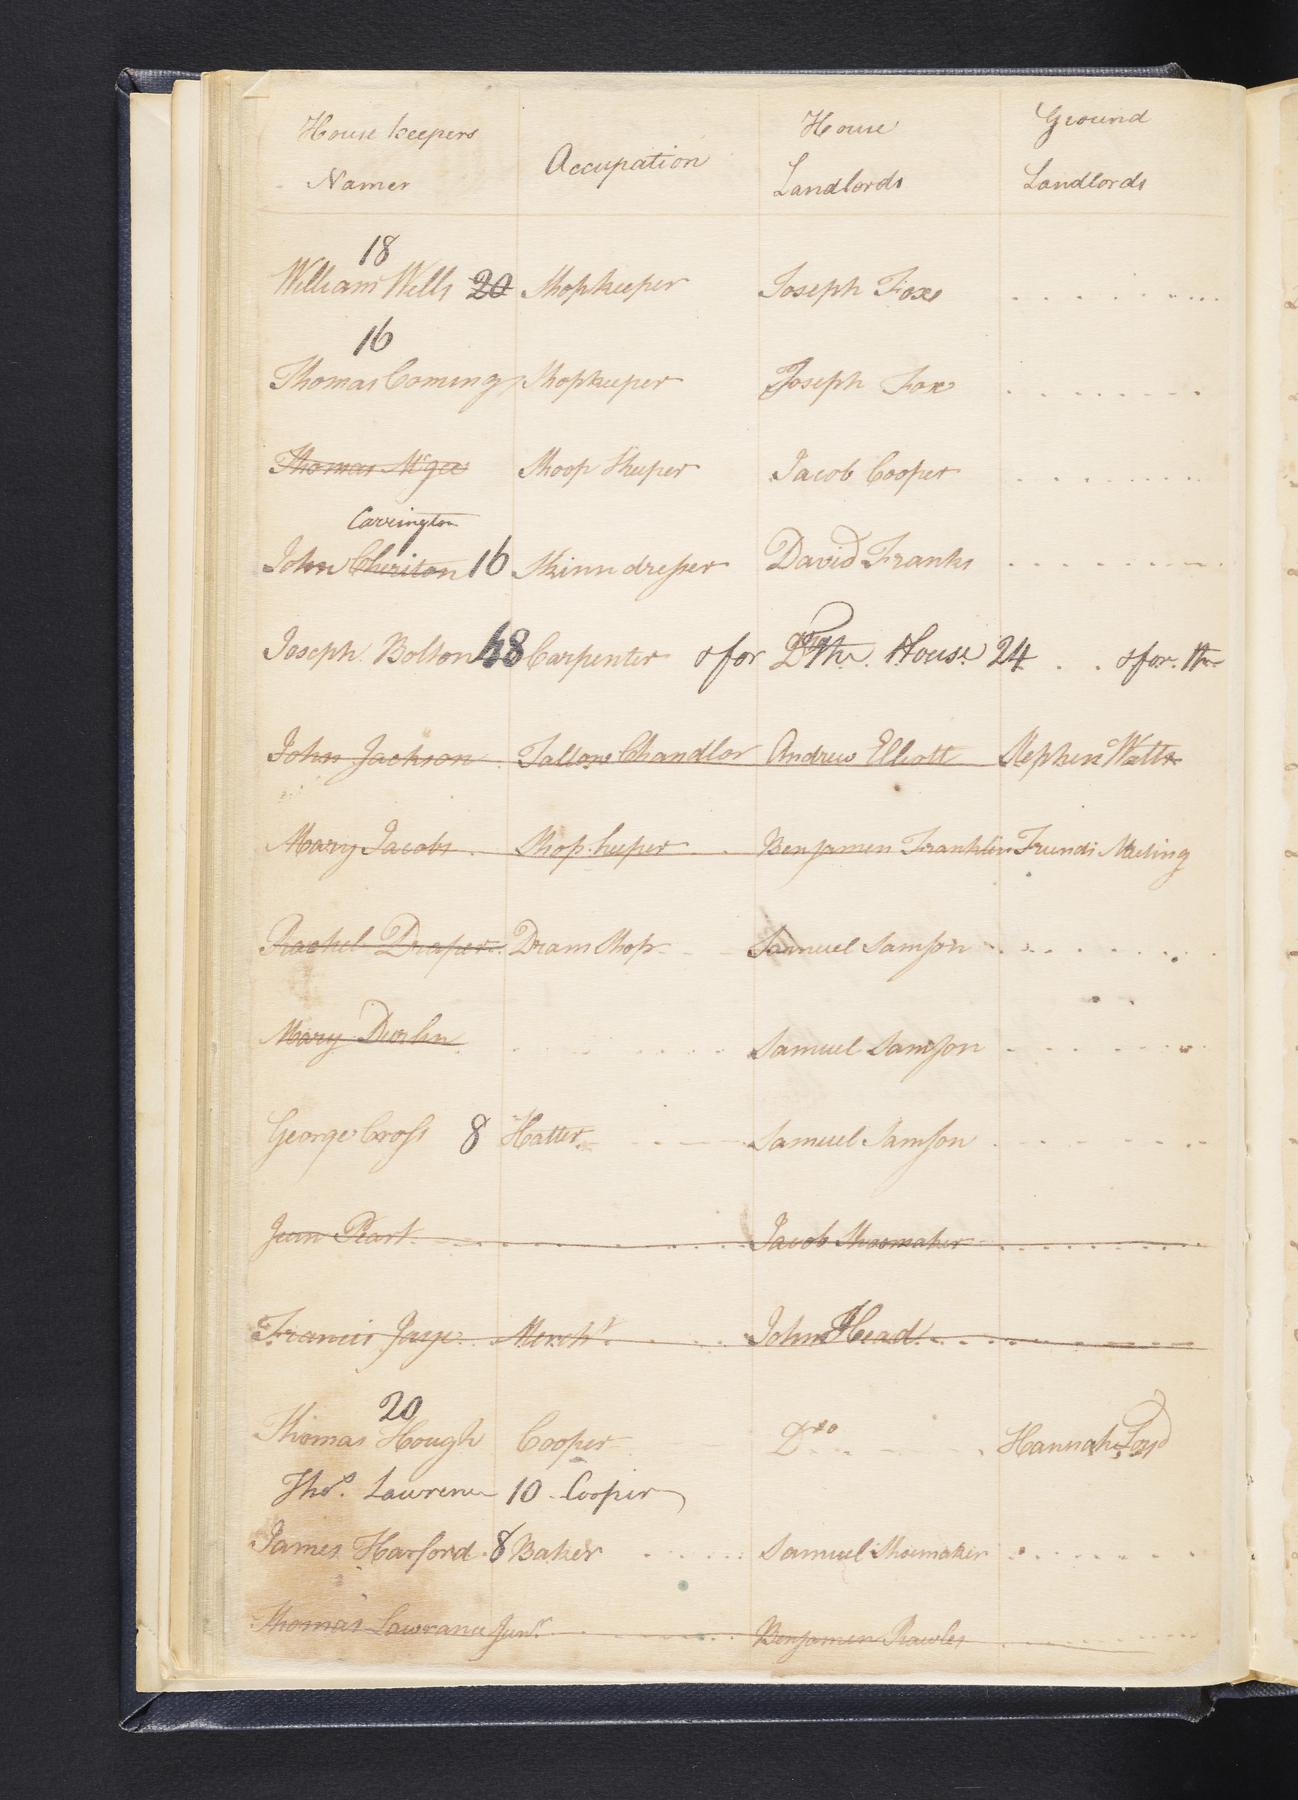 House keepers Names Occupation House Landlords Ground Landlords
18
William Wells 20 Shopkeeper Joseph Fox
16
Thomas Coming Shopkeeper Joseph Fox
Thomas Mcgee Shoop Keeper Jacob Cooper
Carrington
John Cheriton 16 Skinn dresser David Franks
Joseph Bolton 48 Carpenter & for House 24 & for
John Jackson Tallow Chandlor Andrew Elliott Stephen Watts
Mary Jacobs Shop keeper Benjamen Franklin Frends Meeting
Rachel Draper Dram Shop Samuel Samson
Mary Samuel Samson
George Cross 8 Hatter Samuel Samson
Jacob Shoomaker
Francis Mercht John Head
20
Thomas Hough Cooper Dto Hannah
Thos. Lawrence 10 Cooper
James Harford 8 Baker Samuel Shoemaker
Thomas Lawrance Junr. Benjamen Rawles